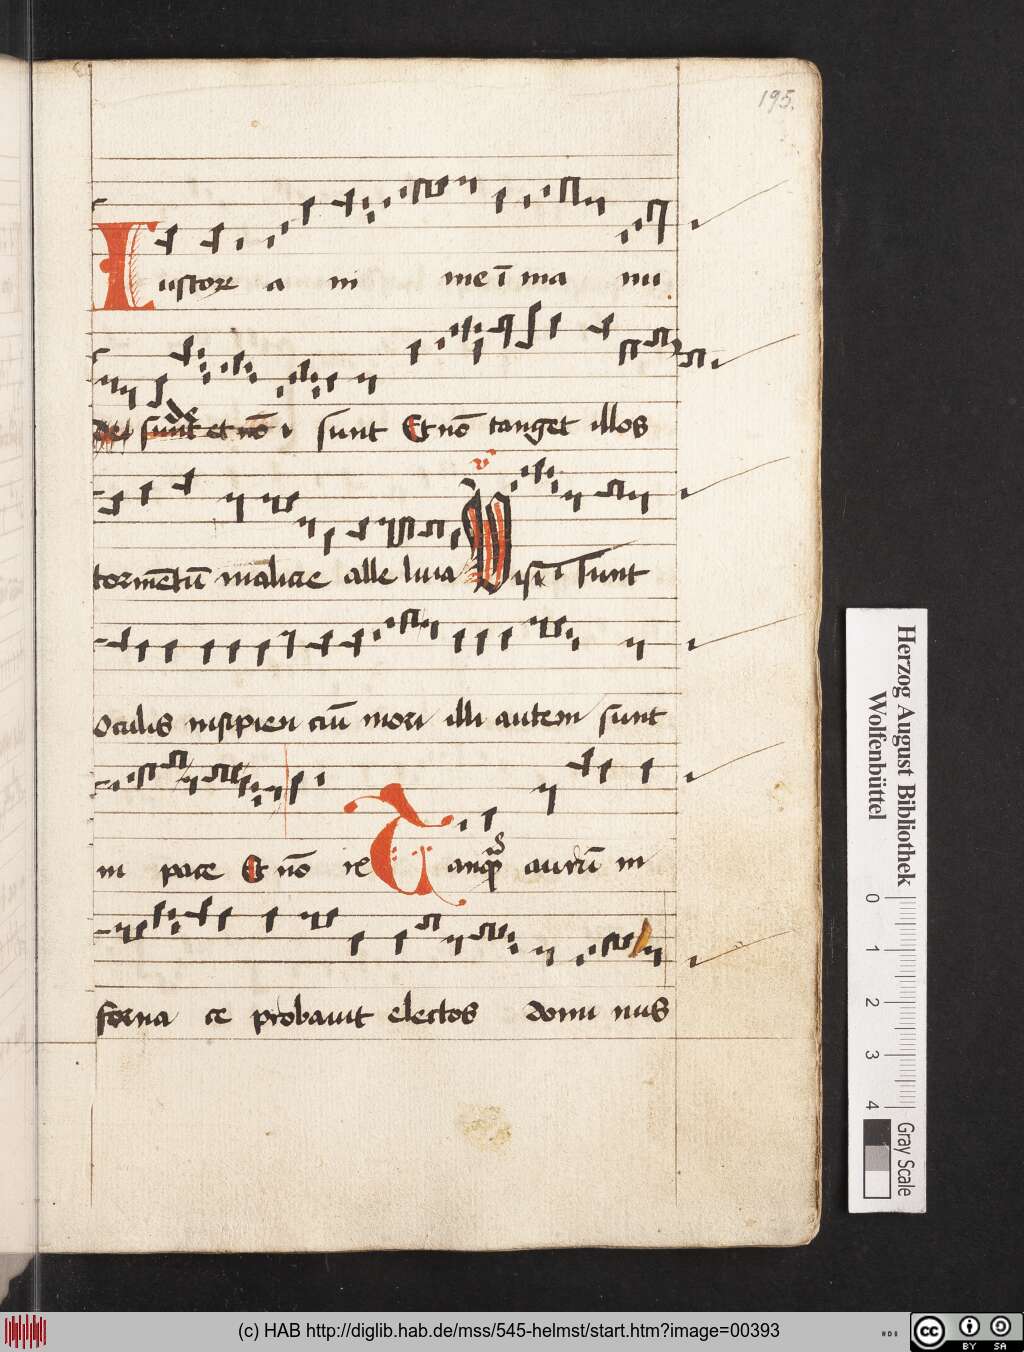 195.
Iustorꝝ a ni me ī ma nu
de sunt et nō i sunt Et nō tanget illos
tormētū malicie alle luia Visi sunt
Oculis insipien ciū mori illi autem sunt
in pace Et nō re Tanqȝ aurū in
forna ce probauit electos domi nus
Herzog August Bibliothek
Wolfenbüttel
0 1 2 3 4
Gray Scale
(c) HAB http://diglib.hab.de/mss/545-helmst/start.htm?image=00393
cc BY SA